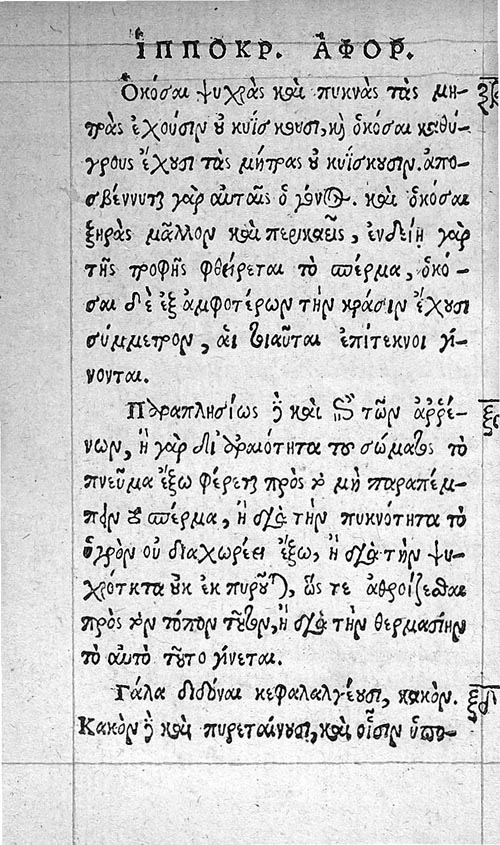 ἹΠΠΟΚΡ. ἈΦΟΡ.
Ὁκόσαι ψυχρὰς καὶ πυκνὰς τὰς μή-
τρας ἐχούσιν οὐ κυΐσκουσι, καὶ ὁκόσαι καθύ-
γρους ἔχουσι τὰς μήτρας οὐ κυΐσκουσιν. ἀπο-
σβέννυται γὰρ αὐταῖς ὁ γόνος. καὶ ὁκόσαι
ξηρὰς μᾶλλον καὶ περικαεῖς, ἐνδείῃ γὰρ
τῆς τροφῆς φθείρεται τὸ σπέρμα, ὁκό-
σαι δὲ ἐξ ἀμφοτέρων τὴν κράσιν ἔχουσι
σύμμετρον, αἱ τοιαῦται ἐπίτεκνοι γί-
νονται.
Παραπλησίως δὲ καὶ ἐπὶ τῶν ἀῤῥέ-
νων, ἢ γὰρ δι' ἀραιότητα τοῦ σώματος τὸ
πνεῦμα ἔξω φέρεται πρὸς τὸ μὴ παραπέμ-
πειν τὸ σπέρμα, ἢ διὰ τὴν πυκνότητα τὸ
ὑγρὸν οὐ διαχωρέει ἔξω, ἢ διὰ τὴν ψυ-
χρότητα οὐκ ἐκπυροῦται, ὥς τε ἀθροίζεσθαι
πρὸς τὸν τόπον τοῦτον, ἢ διὰ τὴν θερμασίην
τὸ αὐτὸ τοῦτο γίνεται.
ξγ
Γάλα διδόναι κεφαλαλγέουσι, κακόν.
ξδ
Κακὸν δὲ καὶ πυρεταίνουσι, καὶ οἷσιν ὑπο-